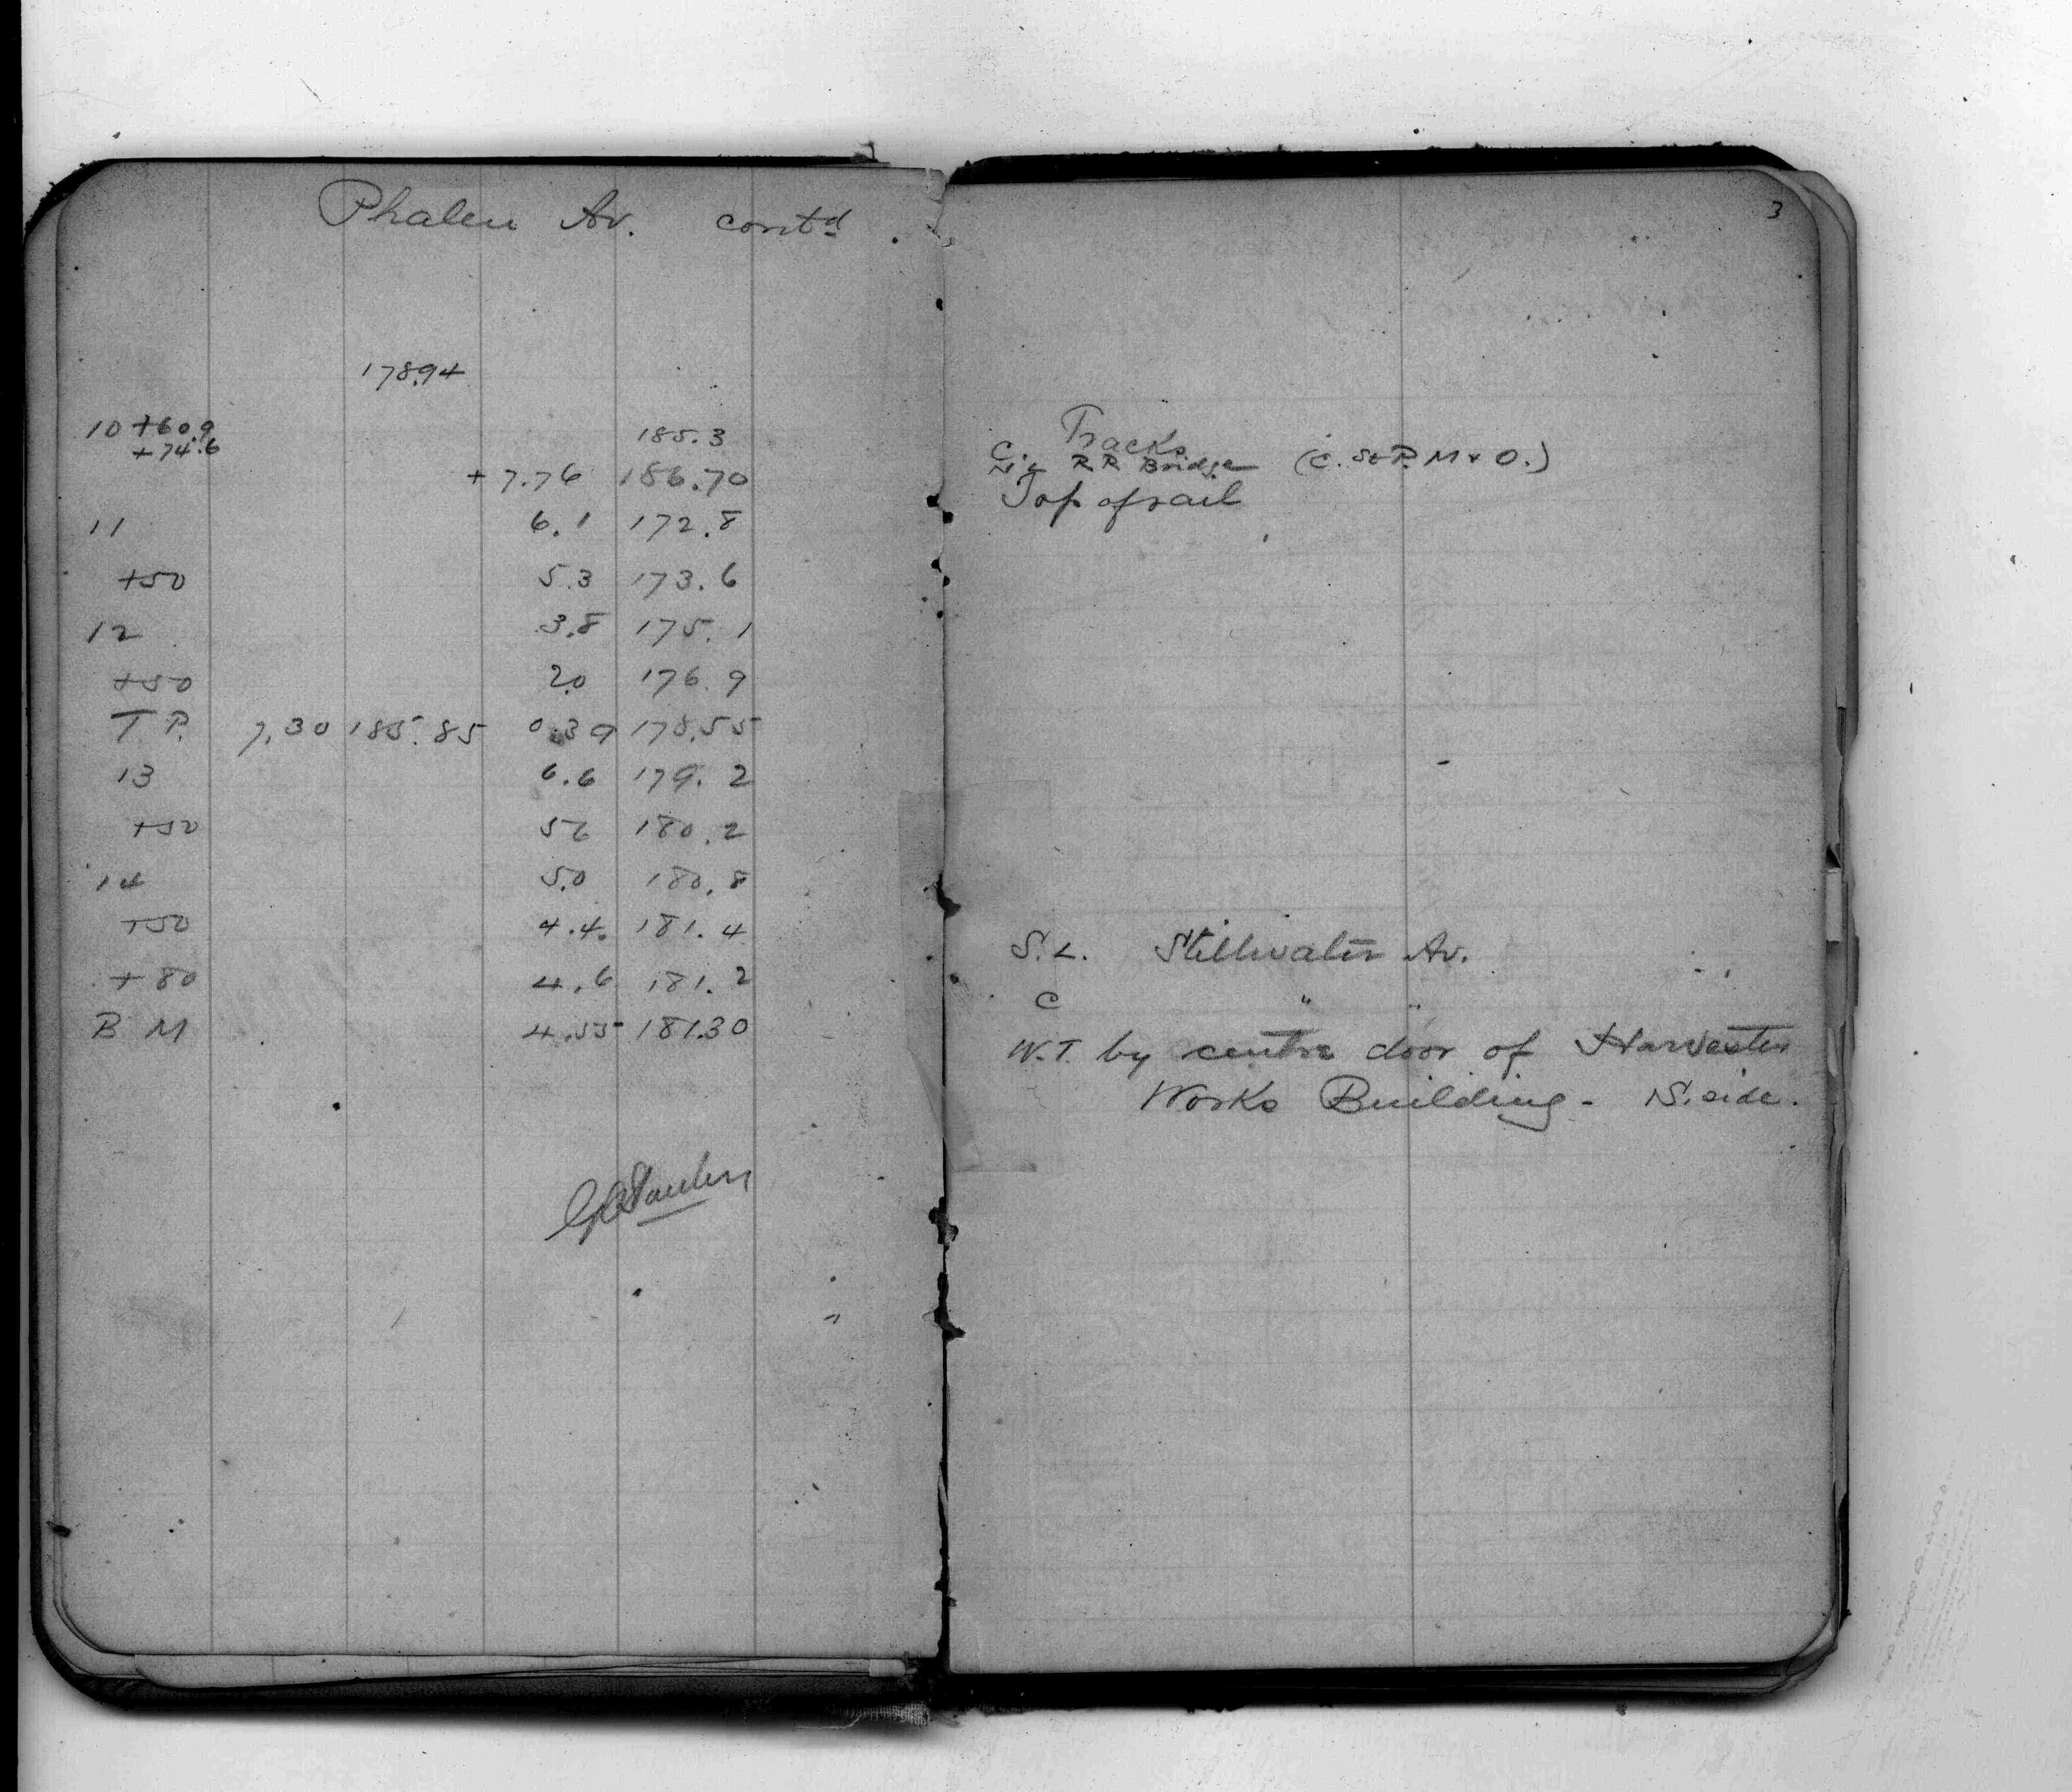 Phalen Av. contd.
178.94
10 +60.9 185.3
+74.6
+7.76 186.70
11 6.1 172.8
+50 5.3 173.6
12 3.8 175.1
+50 2.0 176.9
T.P. 7.30 185.85 0.39 178.55
13 6.6 179.2
+50 5.6 180.2
14 5.0 180.8
+50 4.4 181.4
+80 4.6 181.2
B M 4.55 181.30
3
Tracks
C. RR Bridge (C. St P. M & O.)
Top of rail
S.L. Stillwater Av.
C " "
W.T. by centre door of Harvester
Works Building - N. side.